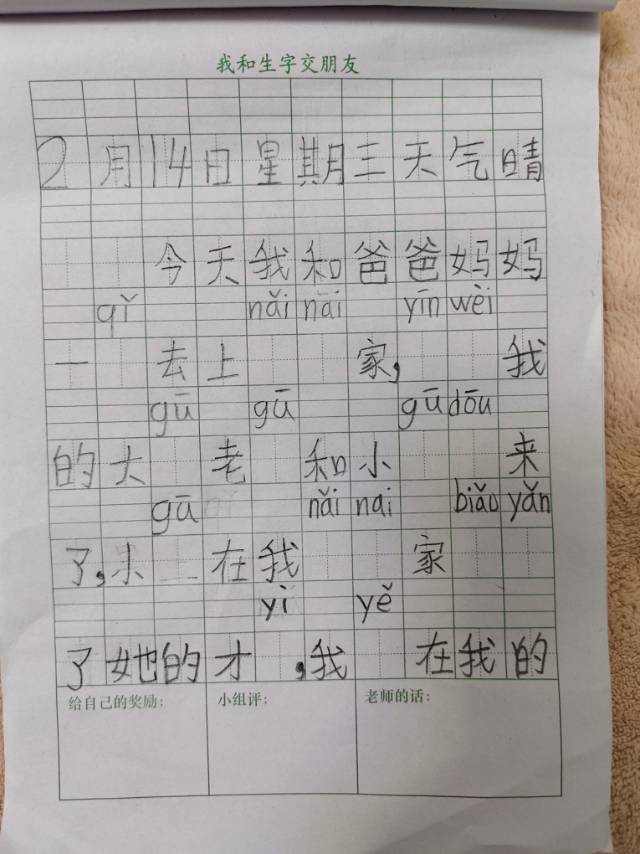 我和生字交朋友
2月14日星期三天气晴
今天我和爸爸妈妈
qǐ nǎi nai yīn wèi
一 去上 家, 我
gū gū gū dōu
的大 老 和小 来
gū nǎi nai biǎo yǎn
了,小 在我 家
yì yě
了她的才 ,我 在我的
给自己的奖励: 小组评: 老师的话: